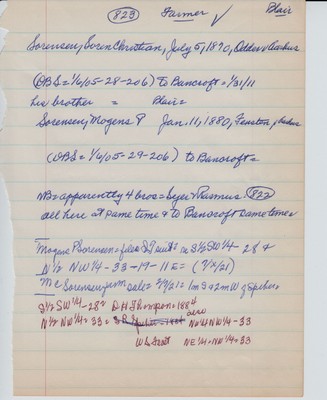 823 Farmer ✓ Blair
Sorensen, Soren Christian, July 5, 1870, Odder Aarhus
(OBS = 1/6/05-28-206) to Bancroft = 1/31/11
his brother = Blair =
Sorensen, Mogens P Jan. 11, 1880,
(OBS = 1/6/05-29-206) to Bancroft =
NB = apparently 4 bros = Sejer & Rasmus 822
all here at same time & to Bancroft same time
Mogens P Sorensen = on S½ SW¼ - 28 &
N½ NW¼ - 33 - 19 - 11 E = (7/8/21)
Mc Sorensen farm sale = 2/9/21 1m S & 2m W of
S½ SW¼ - 28 = D H Thompson = 1884
N½ NW¼ = 33 = NW¼ NW¼ - 33
W L Scott NE¼ = NW¼ = 33